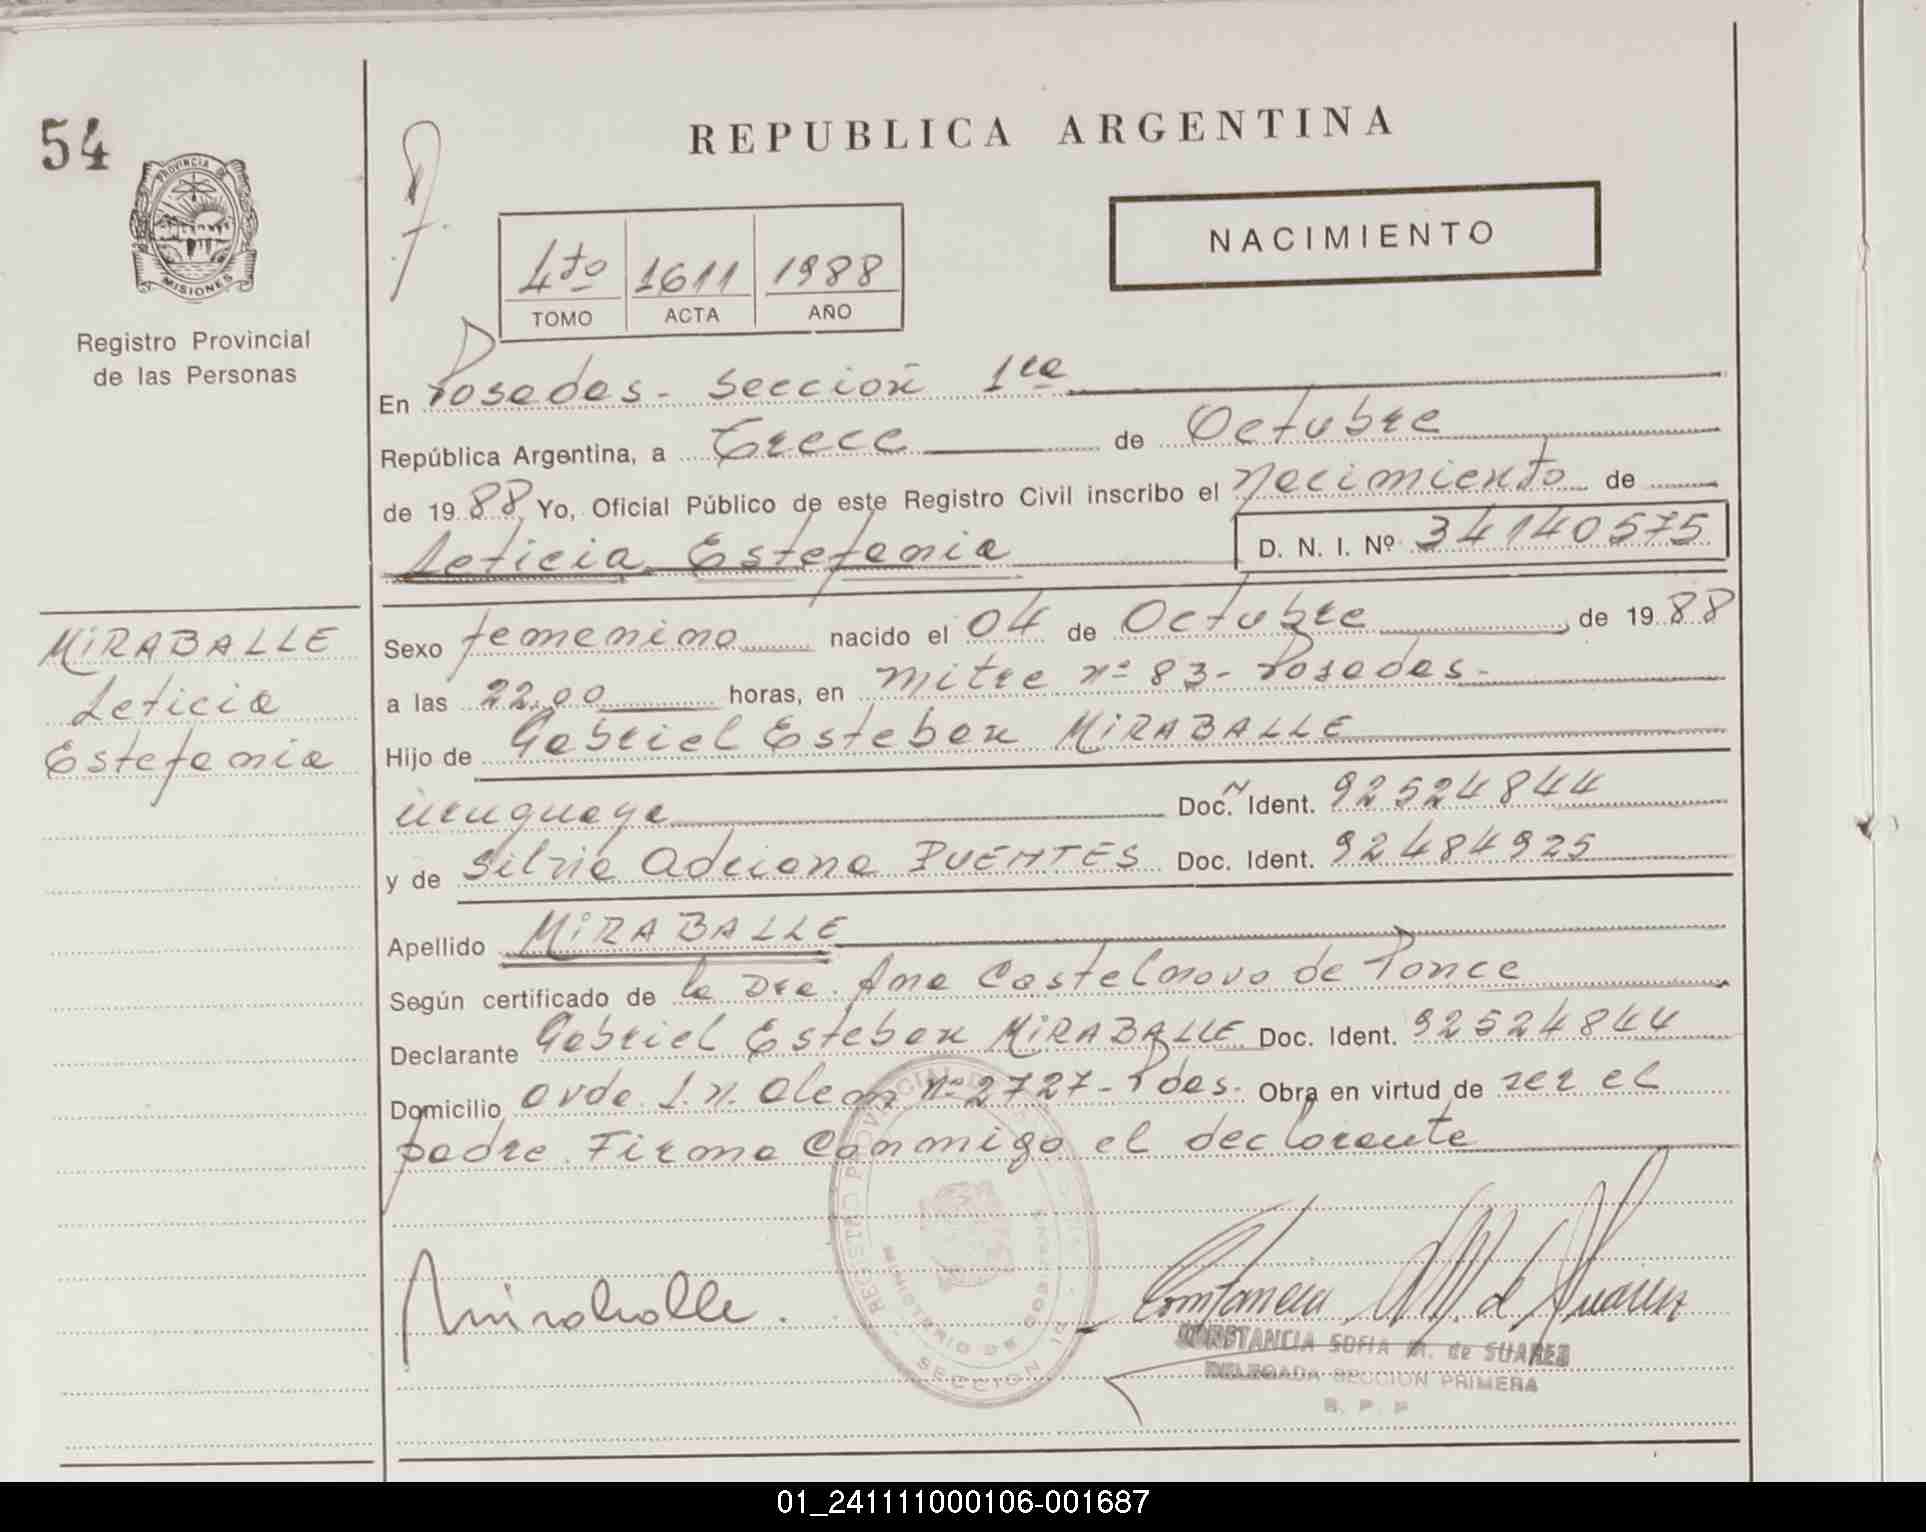 54
PROVINCIA DE
MISIONES
Registro Provincial
de las Personas
REPUBLICA ARGENTINA
NACIMIENTO
4to 1611 1988
TOMO ACTA AÑO
En Posadas - Sección 1ra
República Argentina, a Trece de Octubre
de 1988 Yo, Oficial Público de este Registro Civil inscribo el Nacimiento de
Leticia Estefania D. N. I. Nº 34140575
MIRABALLE
Leticia
Estefania
Sexo femenino nacido el 04 de Octubre de 1988
a las 22,00 horas, en Mitre nº 83 - Posadas -
Hijo de Gabriel Esteban MIRABALLE
uruguaya Doc. Ident. 92524844
y de Silvia Adriana PUENTES Doc. Ident. 92484925
Apellido MIRABALLE
Según certificado de la Dra. Ana Castelnovo de Ponce
Declarante Gabriel Esteban MIRABALLE Doc. Ident. 92524844
Domicilio Avda. L. N. Alem nº 2727 - Pdas. Obra en virtud de ser el
padre. Firma Conmigo el declarante
Miraballe.
REGISTRO PROVINCIAL DE
MINISTERIO DE GOB
SECCION 1ª
Constancia M. de Suarez
CONSTANCIA SOFIA M. de SUAREZ
DELEGADA SECCION PRIMERA
R. P. P
01_241111000106-001687